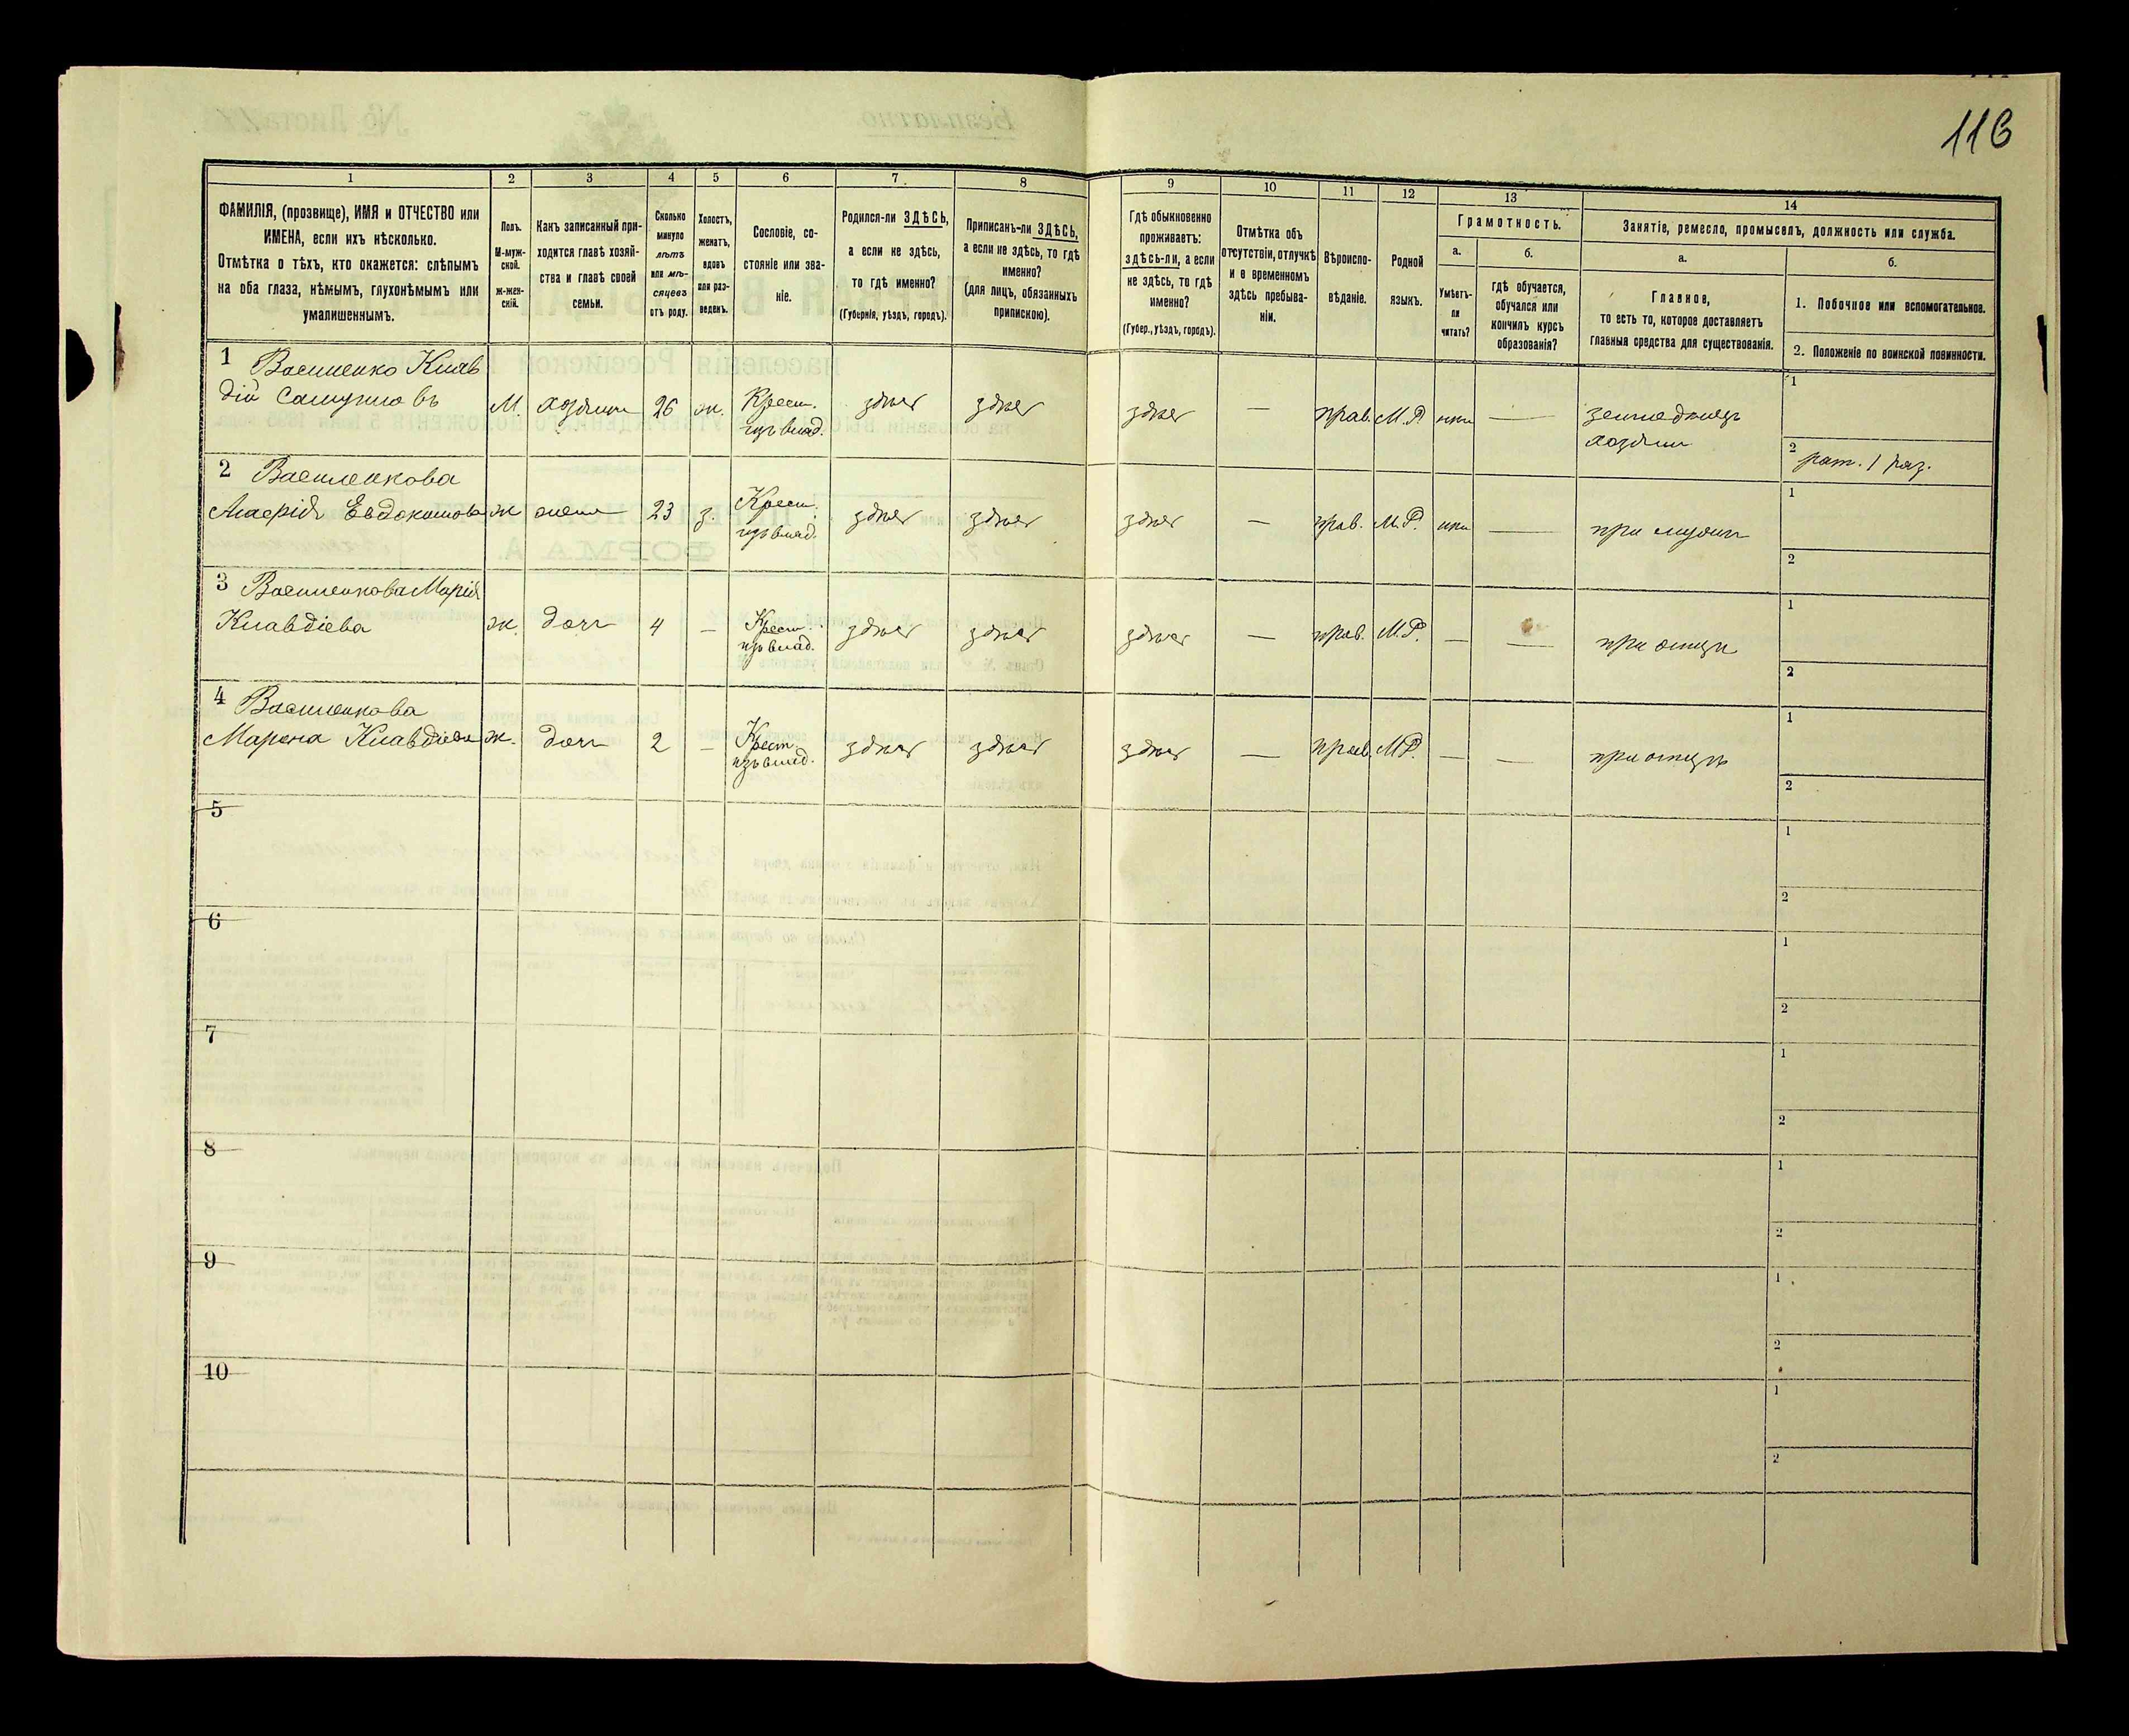 116
1
2
3
4
5
6
7
8
9
10
11
12
13
14
ФАМИЛІЯ, (прозвище), ИМЯ и ОТЧЕСТВО или
ИМЕНА, если ихъ нѣсколько.
Отмѣтка о тѣхъ, кто окажется: слѣпымъ
на оба глаза, нѣмымъ, глухонѣмымъ или
умалишеннымъ.
Полъ.
М-муж-
ской.
ж-жен-
скій.
Какъ записанный при-
ходится главѣ хозяй-
ства и главѣ своей
семьи.
Сколько
минуло
лѣтъ
или мѣ-
сяцевъ
отъ роду.
Холостъ,
женатъ,
вдовъ
или раз-
веденъ.
Сословіе, со-
стояніе или зва-
ніе.
Родился-ли ЗДѢСЬ,
а если не здѣсь,
то гдѣ именно?
(Губернія, уѣздъ, городъ).
Приписанъ-ли ЗДѢСЬ,
а если не здѣсь, то гдѣ
именно?
(для лицъ, обязанныхъ
припискою).
Гдѣ обыкновенно
проживаетъ:
здѣсь-ли, а если
не здѣсь, то гдѣ
именно?
(Губер., уѣздъ, городъ).
Отмѣтка объ
отсутствіи, отлучкѣ
и о временномъ
здѣсь пребыва-
ніи.
Вѣроиспо-
вѣданіе.
Родной
языкъ.
Грамотность.
а.
б.
Умѣетъ-
ли
читать?
гдѣ обучается,
обучался или
кончилъ курсъ
образованія?
Занятіе, ремесло, промыселъ, должность или служба.
а.
б.
Главное,
то есть то, которое доставляетъ
главныя средства для существованія.
1. Побочное или вспомогательное.
2. Положеніе по воинской повинности.
1 Василенко Клав
дій Самуиловъ
М. хозяинъ 26 ж. Крест. изъ влад. здѣсь здѣсь здѣсь — прав. М.Р. —
земледѣлецъ
хозяинъ
1
2 рат. 1 раз.
2 Василенкова
Евдокимова ж жена 23 з. Крест. изъ влад. здѣсь здѣсь здѣсь — прав. М.Р. — при мужѣ
1
2
3 Василенкова Марія
Клавдіева ж. дочь 4 — Крест. изъ влад. здѣсь здѣсь здѣсь — прав. М.Р. — — при отцѣ
1
2
4 Василенкова
Клавдіева ж. дочь 2 — Крест. изъ влад. здѣсь здѣсь здѣсь — прав. М.Р. — — при отцѣ
1
2
5
1
2
6
1
2
7
1
2
8
1
2
9
1
2
10
1
2